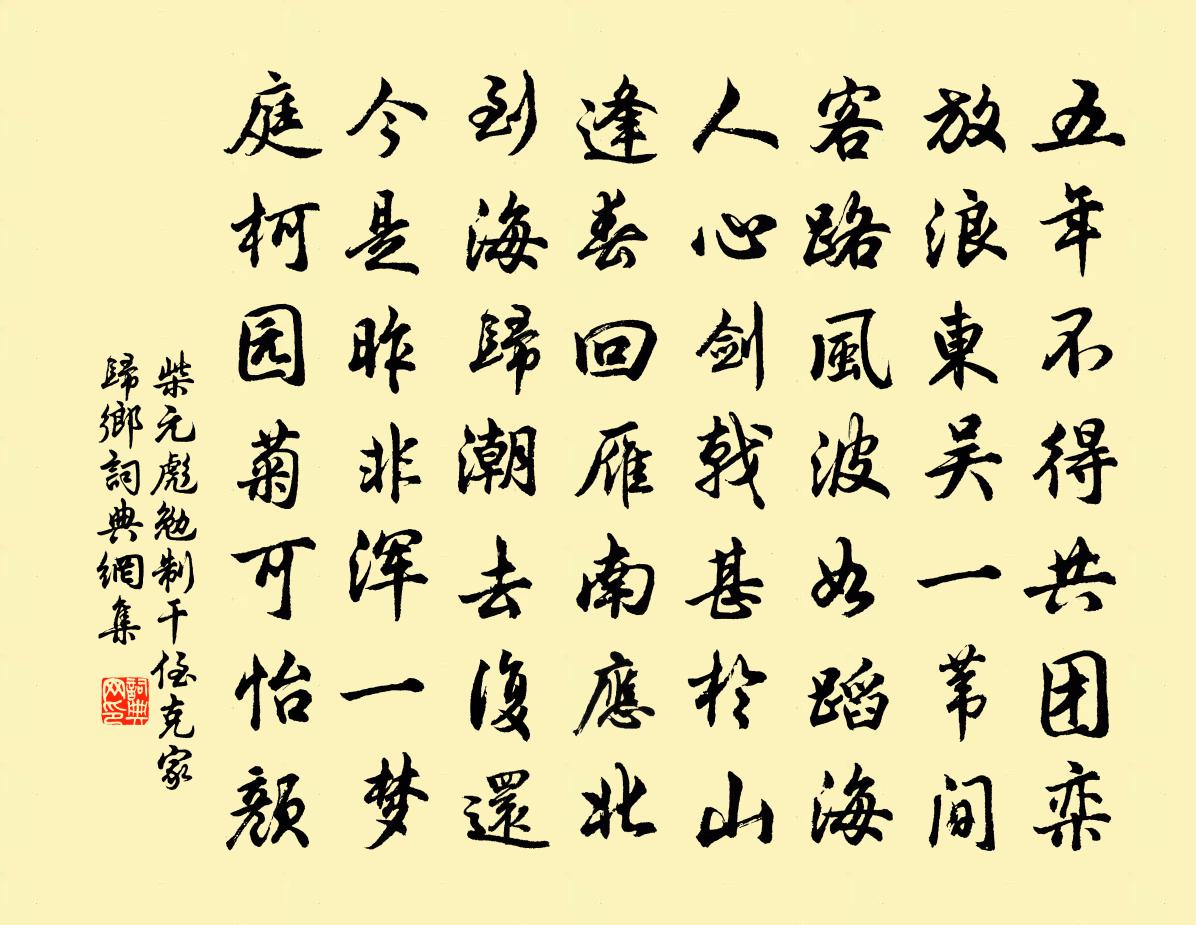 五年不得共团栾
放浪東吴一苇间
客路風波如蹈海
人心剑戟甚於山
逢春回雁南應北
到海歸潮去復還
今是昨非浑一梦
庭柯园菊可怡颜
柴元彪勉制干侄克家
歸鄉詞典網集
詞典
网印